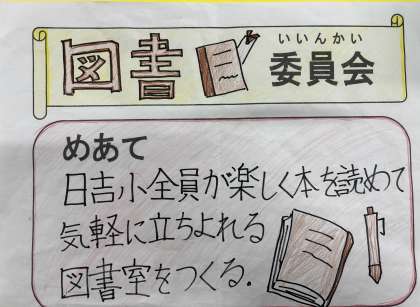 図書
いいんかい
委員会
めあて
日吉小全員が楽しく本を読めて
気軽に立ちよれる
図書室をつくる.